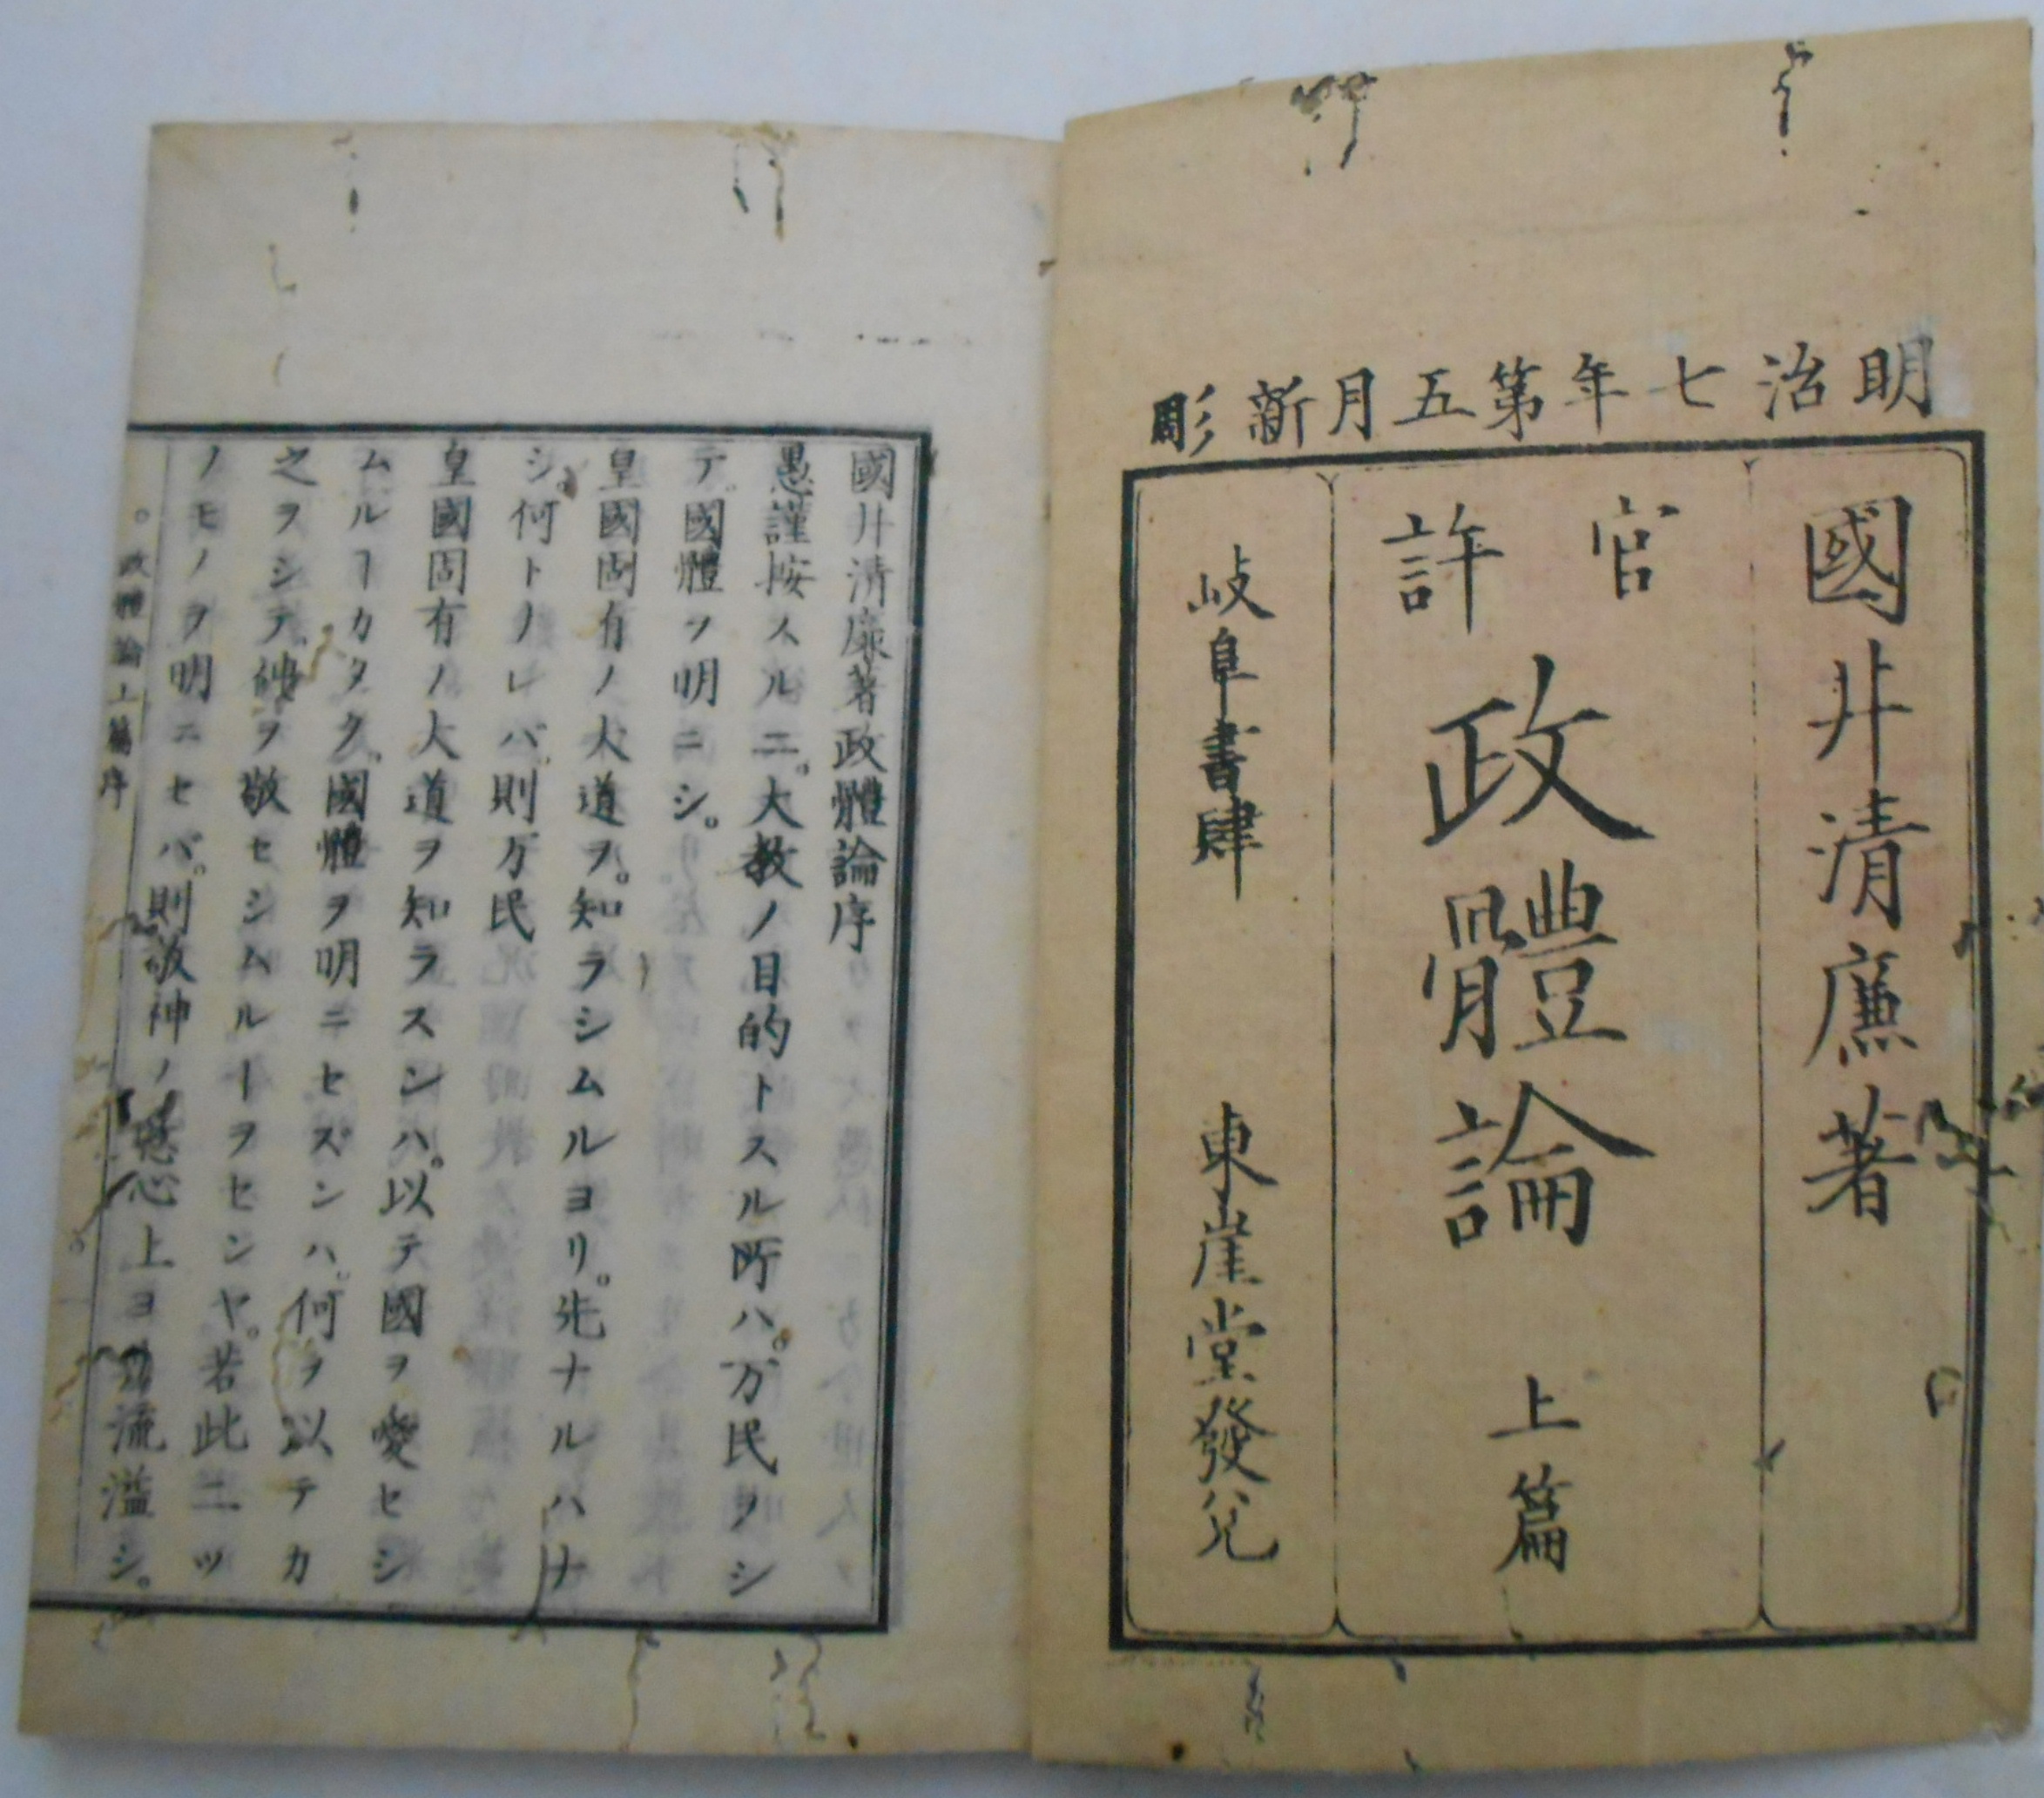 明治七年第五月新彫
國井清廉著
官許
政體論 上篇
岐阜書肆 東崖堂發兌
國井清廉著政體論序
愚謹按スルニ。大教ノ目的トスル所ハ。万民ヲシ
テ。國體ヲ明ニシ。
皇國固有ノ大道ヲ。知ラシムルヨリ。先ナルハナ
シ。何トナレバ。則万民
皇國固有ノ大道ヲ知ラスンハ。以テ國ヲ愛セシ
ムルヿカタク。國體ヲ明ニセズンハ。何ヲ以テカ
之ヲシテ。神ヲ敬セシムルヿヲセンヤ。若此ニツ
ノモノヲ明ニセバ。則敬神ノ心上ヨリ流溢シ。
政體論上篇序